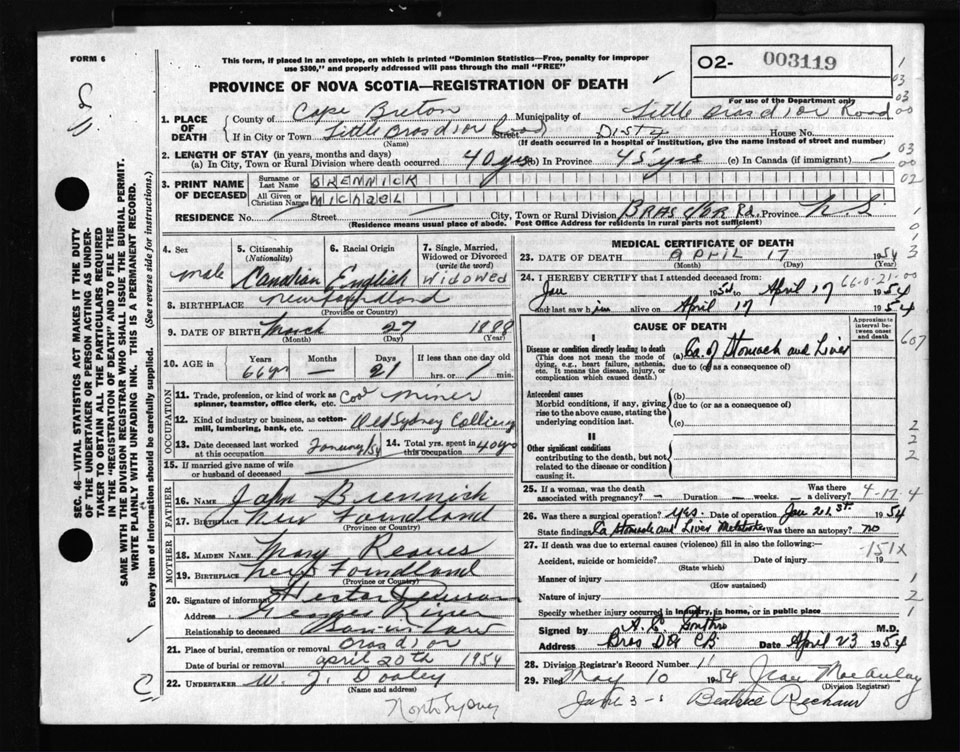 FORM 6
This form, if placed in an envelope, on which is printed "Dominion Statistics—Free, penalty for improper
use $300," and properly addressed will pass through the mail "FREE"
O2- 003119
PROVINCE OF NOVA SCOTIA—REGISTRATION OF DEATH
For use of the Department only
1. PLACE OF DEATH
County of Cape Breton Municipality of Little Bras d'or Road
If in City or Town Little Bras d'or Road Street Dist 4 House No.
(Name) (If death occurred in a hospital or institution, give its name instead of street and number)
2. LENGTH OF STAY (in years, months and days)
(a) In City, Town or Rural Division where death occurred 40 yrs (b) In Province 45 yrs (c) In Canada (if immigrant) —
3. PRINT NAME OF DECEASED
Surname or Last Name BRENNICK
All Given or Christian Names MICHAEL
RESIDENCE No. Street City, Town or Rural Division BRAS D'OR Rd. Province N.S.
(Residence means usual place of abode. Post Office Address for residents in rural parts not sufficient)
4. Sex
male
5. Citizenship
(Nationality)
Canadian
6. Racial Origin
English
7. Single, Married,
Widowed or Divorced
(write the word)
Widowed
8. BIRTHPLACE Newfoundland
(Province or Country)
9. DATE OF BIRTH March 27 1888
(Month) (Day) (Year)
10. AGE in
Years Months Days If less than one day
66 yrs — 21 hrs. or min.
OCCUPATION
11. Trade, profession, or kind of work as
spinner, teamster, office clerk, etc. Coal miner
12. Kind of industry or business, as cotton-
mill, lumbering, bank, etc. Old Sydney Colliery
13. Date deceased last worked
at this occupation January/54
14. Total yrs. spent in
this occupation 40 yrs
15. If married give name of wife
or husband of deceased
FATHER
16. NAME John Brennick
17. BIRTHPLACE New Foundland
(Province or Country)
MOTHER
18. MAIDEN NAME Mary Reaves
19. BIRTHPLACE New Foundland
(Province or Country)
20. Signature of informant Hector
Address Georges River
Relationship to deceased
21. Place of burial, cremation or removal Bras d'or
Date of burial or removal april 20th 1954
22. UNDERTAKER W. J. Dooley
(Name and address)
North Sydney
MEDICAL CERTIFICATE OF DEATH
23. DATE OF DEATH APRIL 17 1954
(Month) (Day) (Year)
66-0-21-00
24. I HEREBY CERTIFY that I attended deceased from:
Jan 1954 to April 17 1954
and last saw him alive on April 17 1954
CAUSE OF DEATH
Approximate
interval be-
tween onset
and death
I
Disease or condition directly leading to death
(This does not mean the mode of
dying, e.g., heart failure, asthenia,
etc. It means the disease, injury, or
complication which caused death.)
(a) Ca. of Stomach and Liver
due to (or as a consequence of)
Antecedent causes
Morbid conditions, if any, giving
rise to the above cause, stating the
underlying condition last.
(b)
due to (or as a consequence of)
(c)
II
Other significant conditions
contributing to the death, but not
related to the disease or condition
causing it.
25. If a woman, was the death
associated with pregnancy? — Duration — weeks. — Was there
a delivery?
4-17-4
26. Was there surgical operation? Yes. Date of operation Jan 21st. 1954
State findings Ca Stomach and Liver Metastases Was there an autopsy? no
27. If death was due to external causes (violence) fill in also the following:—
-151X
Accident, suicide or homicide? Date of injury 19
(State which)
Manner of injury
(How sustained)
Nature of injury
Specify whether injury occurred in industry, in home, or in public place
Signed by A. S. Gouthro M.D.
Address Bras D'Or CB Date April 23 1954
28. Division Registrar's Record Number 11
29. Filed May 10 1954 Jean MacAulay
(Division Registrar)
June 3-1 Beatrice
SEC. 46—VITAL STATISTICS ACT MAKES IT THE DUTY
OF THE UNDERTAKER OR PERSON ACTING AS UNDER-
TAKER TO OBTAIN ALL THE PARTICULARS REQUIRED
IN THE "REGISTRATION OF DEATH" AND TO FILE THE
SAME WITH THE DIVISION REGISTRAR WHO SHALL ISSUE THE BURIAL PERMIT.
WRITE PLAINLY WITH UNFADING INK. THIS IS A PERMANENT RECORD.
Every item of information should be carefully supplied. (See reverse side for instructions.)